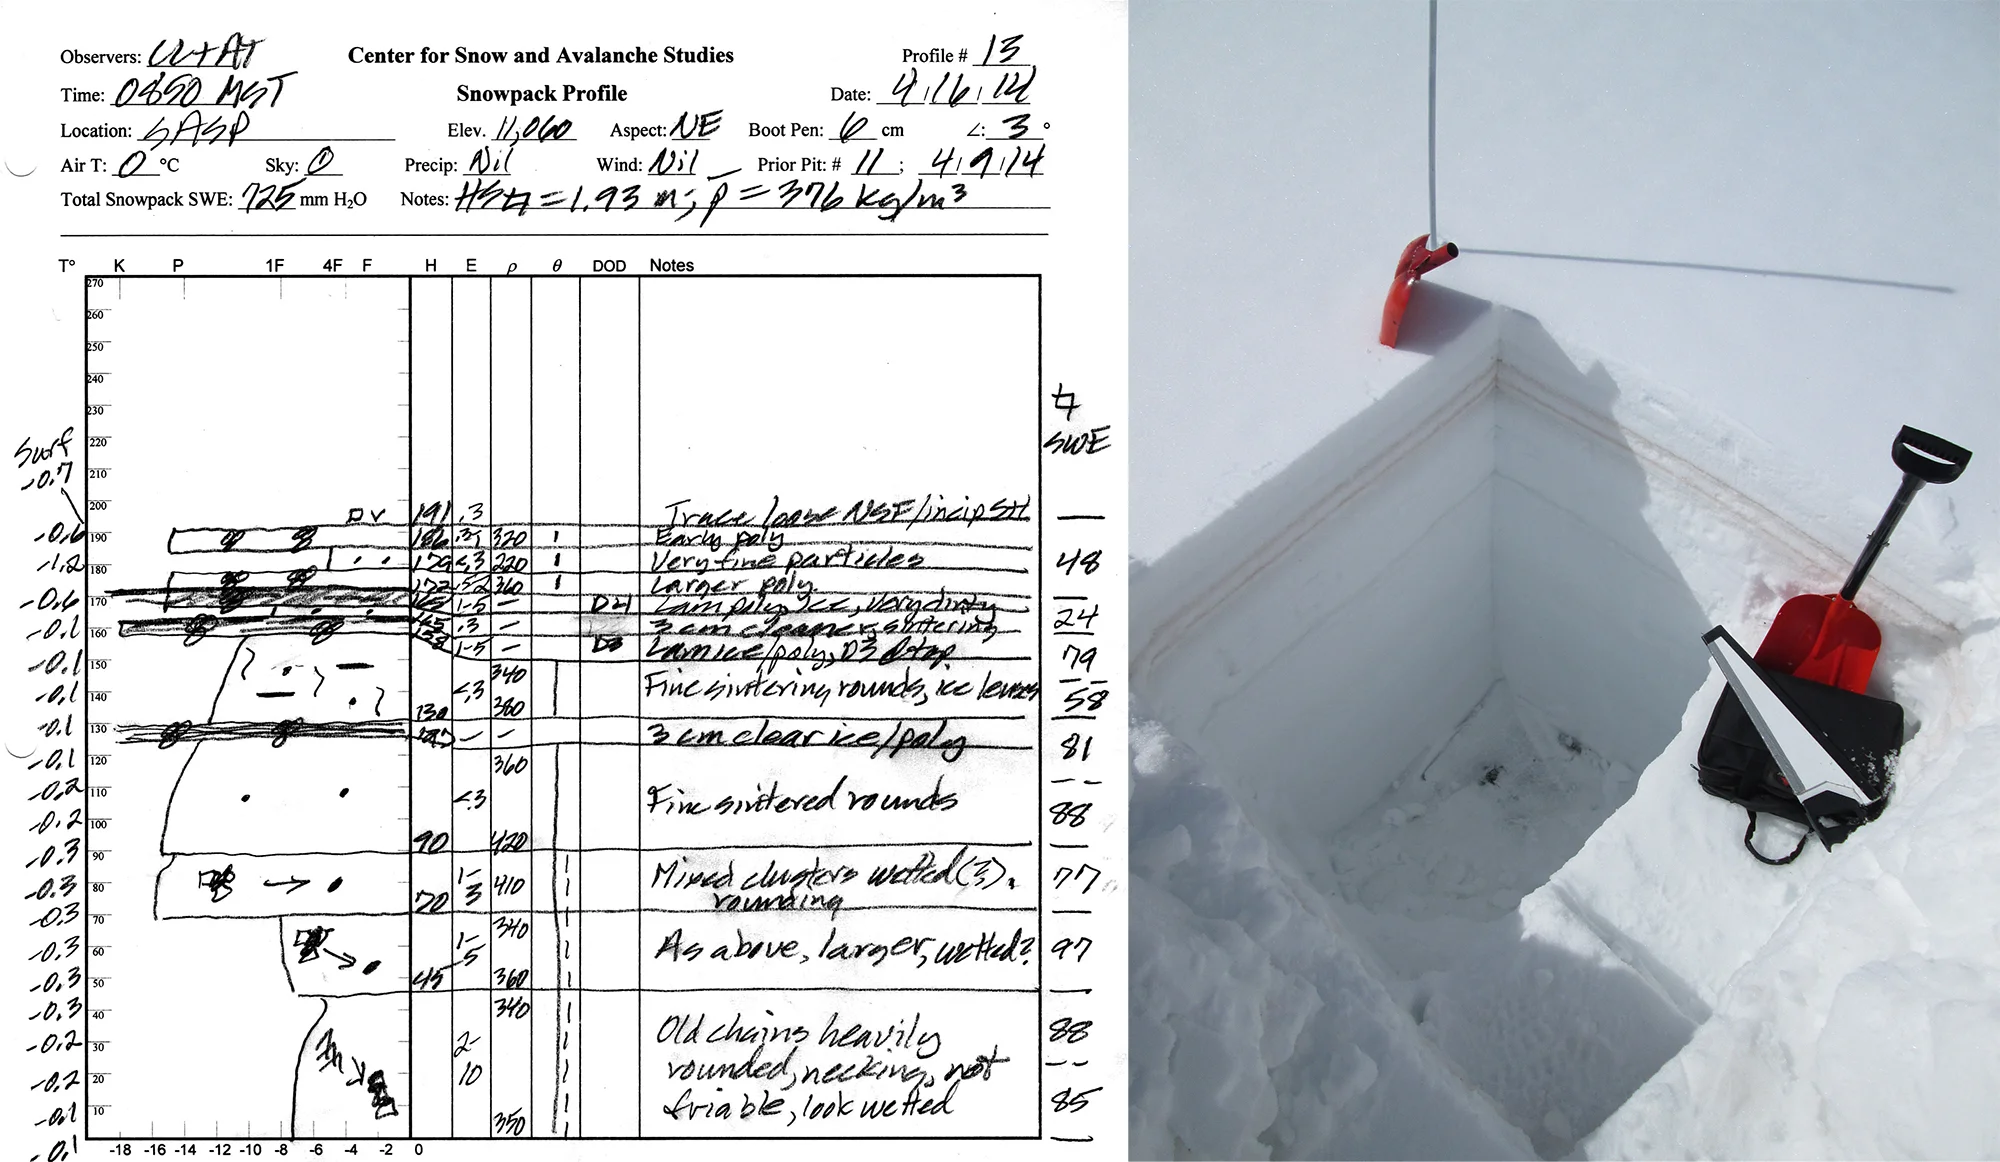 Observers: CL+AT Center for Snow and Avalanche Studies Profile # 13
Time: 0850 MST Snowpack Profile Date: 4,16,14
Location: SASP Elev. 11,060 Aspect: NE Boot Pen: 6 cm ∠: 3 °
Air T: 0 °C Sky: Precip: Nil Wind: Nil Prior Pit: # 11 ; 4,9,14
Total Snowpack SWE: 725 mm H₂O Notes: = 1.93 m; ρ̄ = 376 kg/m³
T° K P 1F 4F F H E ρ θ DOD Notes
270
260
250
240
230
SWE
220
Surf
210
-0.7
200
191 .3 Trace loose NSF/incip SH —
-0.6 190 186 320 Early poly
-1.2 180 179 <.3 220 Very fine particles 48
172 .5-2 360 Larger poly
-0.6 170 1-5 – D4 Lam poly, ice, very dirty
-0.1 160 .3 – 3 cm cleaner, sintering 24
1-5 – D3 Lam ice/poly, D3 @ top 79
-0.1 150 340
-0.1 140 <.3 Fine sintering rounds, ice lenses 58
130 380
-0.1 130 – – 3 cm clear ice/poly 81
-0.1 120 360
-0.2 110 <.3 Fine sintered rounds
-0.2 100 88
-0.3 90 90 420
-0.3 80 1-3 410 Mixed clusters wetted (3), 77
70 rounding
-0.3 70 340
-0.3 60 1-5 As above, larger, wetted? 97
-0.3 50 45 360
-0.3 40 340
-0.2 30 2- Old chains heavily 88
-0.2 20 10 rounded, necking, not
-0.1 10 350 friable, look wetted 85
-0.1
-18 -16 -14 -12 -10 -8 -6 -4 -2 0